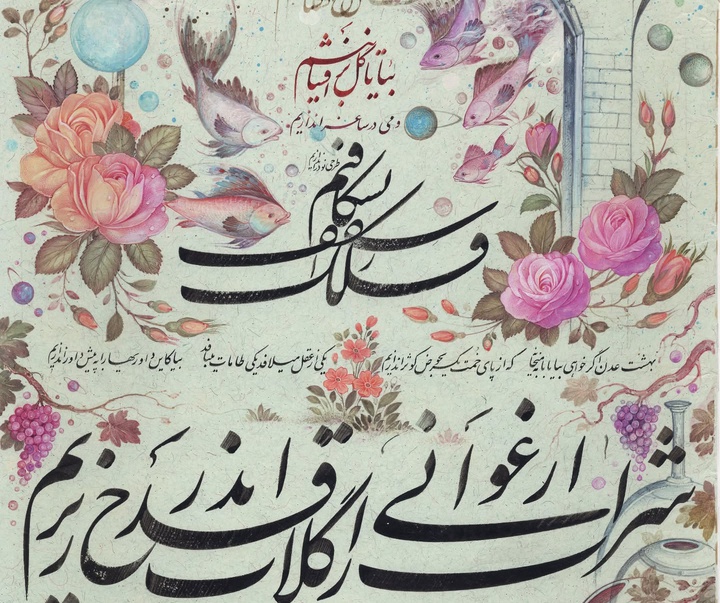 بیا تا گل برافشانیم
و می در ساغر اندازیم
فلک را سقف بشکافیم
طرحی نو دراندازیم
بهشت عدن اگر خواهی بیا با ما به میخانه که از پای خمت یکسر به حوض کوثر اندازیم
یکی از عقل می‌لافد یکی طامات می‌بافد بیا کاین داوری‌ها را به پیش داور اندازیم
شراب ارغوانی را گلاب اندر قدح ریزیم